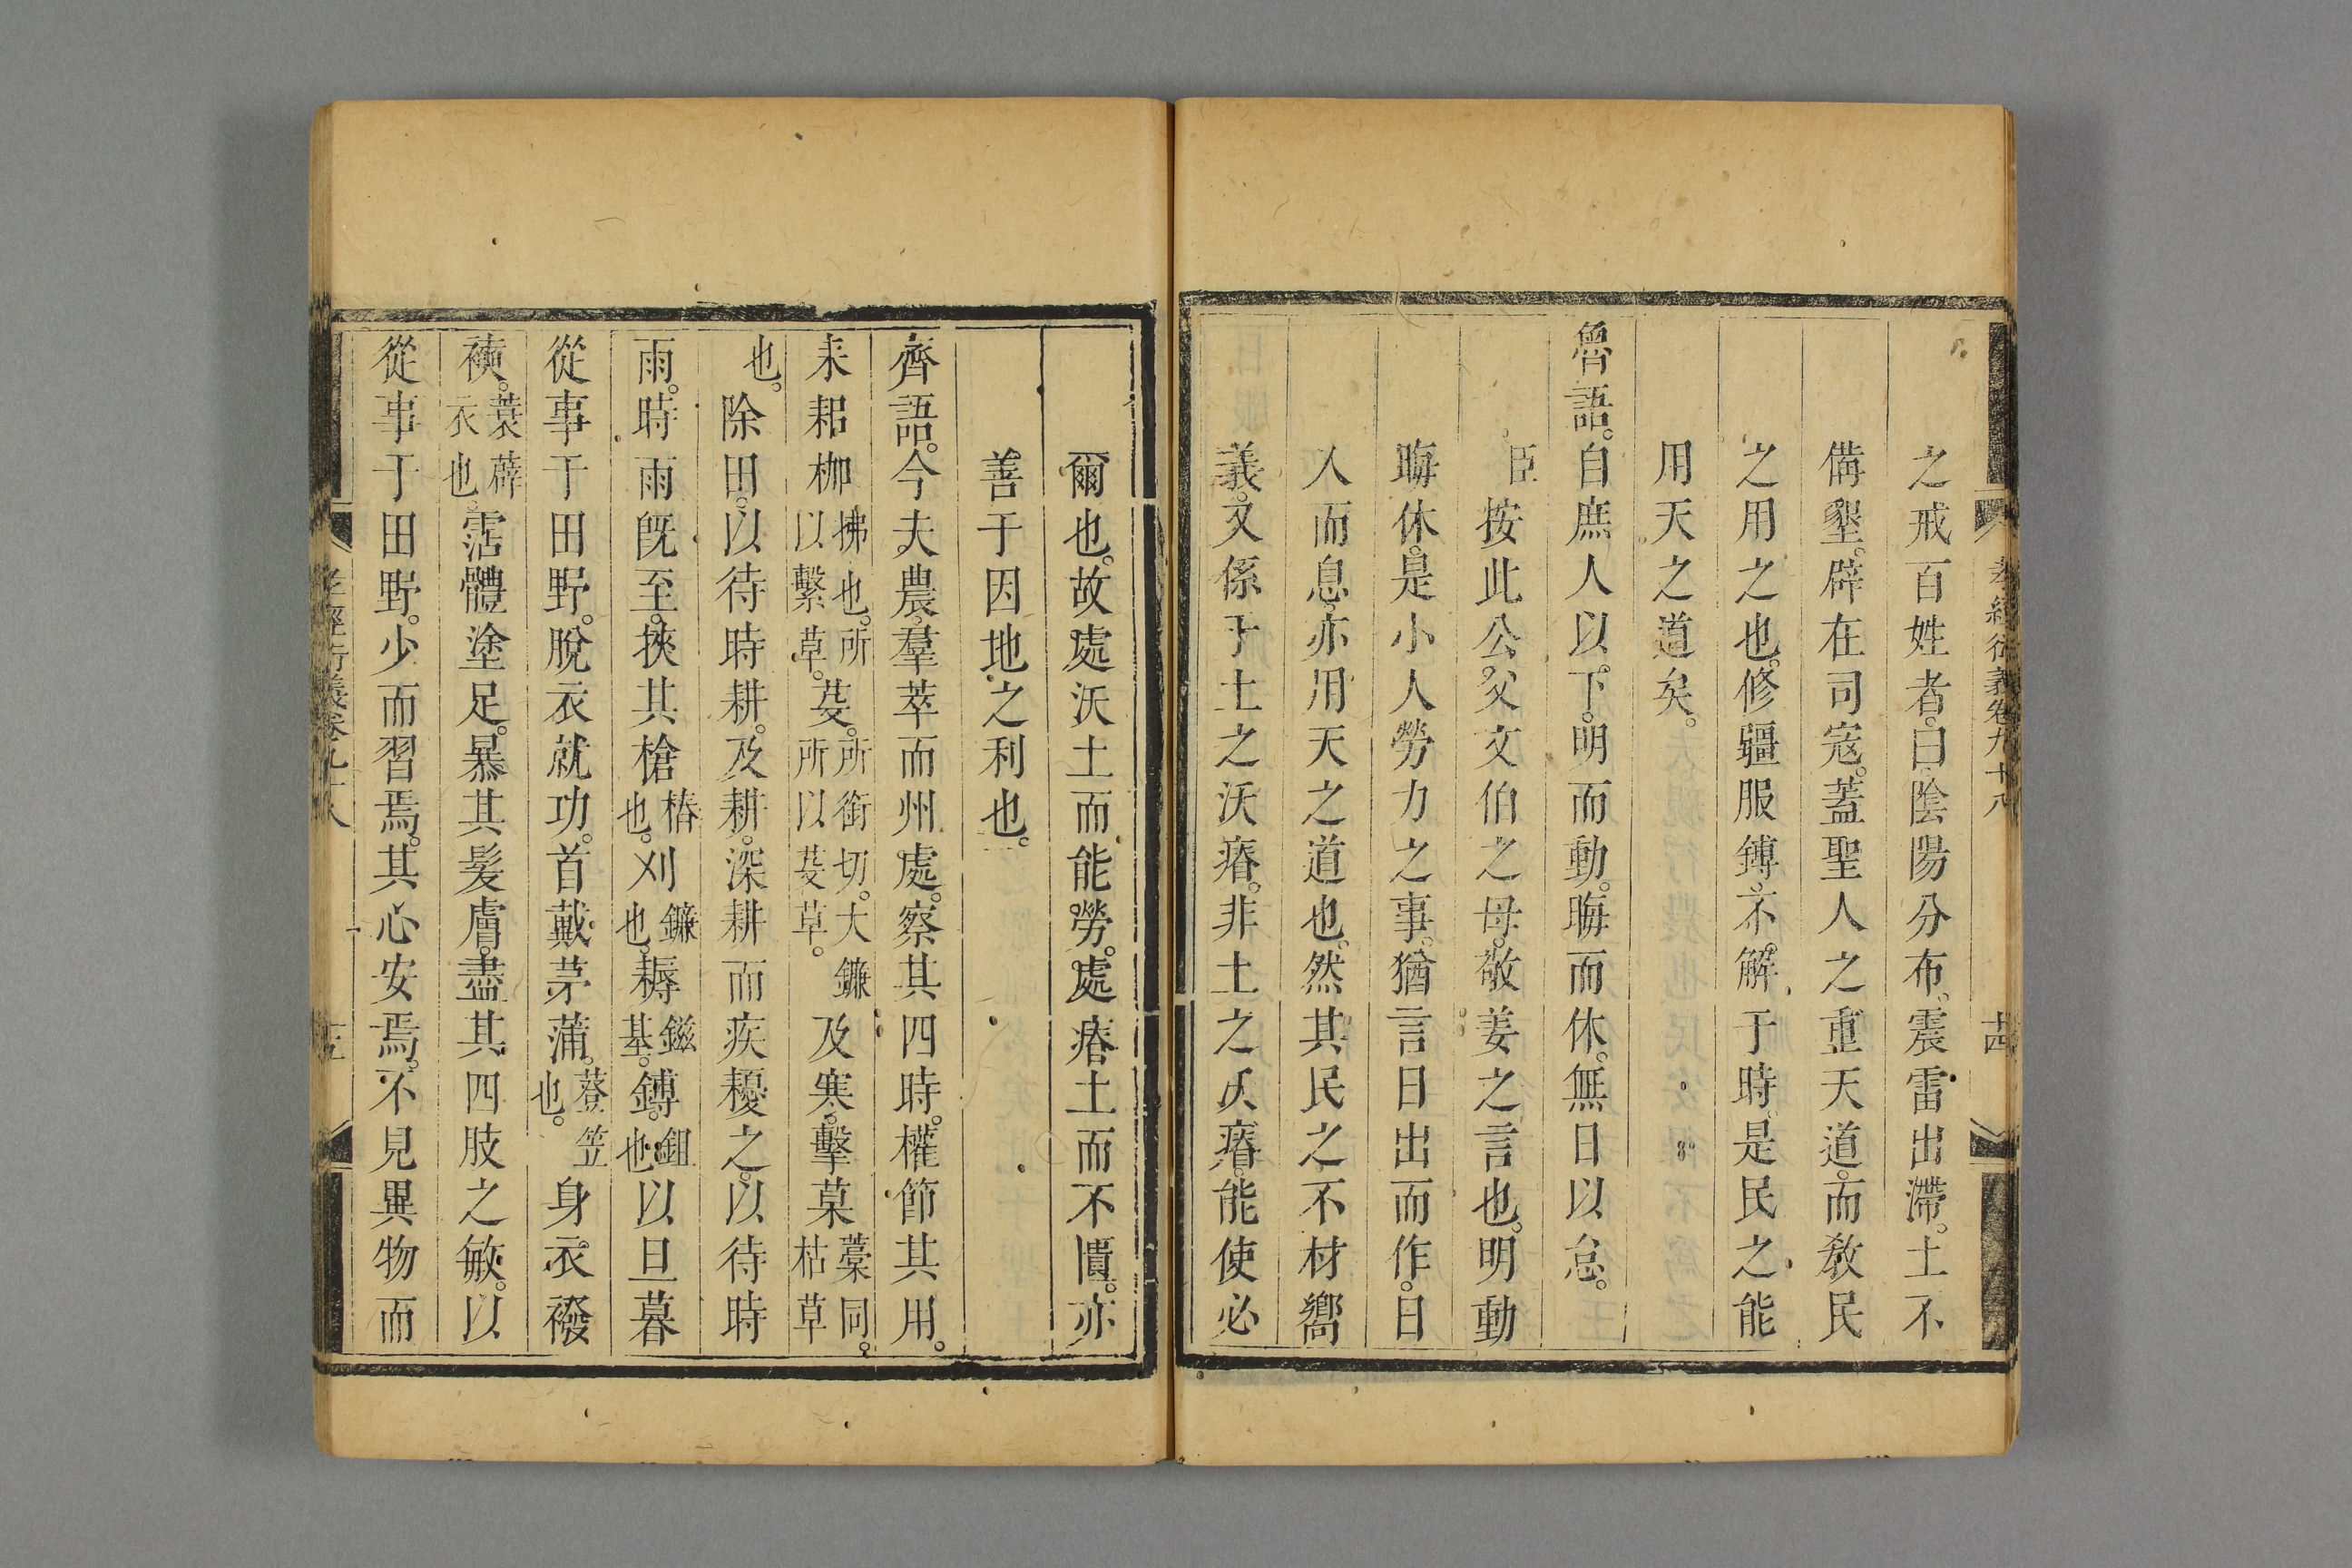 孝經衍義卷九十八
十四
之戒百姓者曰陰陽分布震雷出滯土不
備墾辟在司寇蓋聖人之重天道而教民
之用之也修疆服鎛不解于時是民之能
用天之道矣
魯語自庶人以下明而動晦而休無日以怠
臣按此公父文伯之母敬姜之言也明動
晦休是小人勞力之事猶言日出而作日
入而息亦用天之道也然其民之不材嚮
義又係于土之沃瘠非土之沃瘠能使必
爾也故處沃土而能勞處瘠土而不匱亦
善于因地之利也
齊語今夫農羣萃而州處察其四時權節其用
耒耜枷拂也所以繫草芟所銜切大鐮所以芟草及寒擊菒藁同枯草
也除田以待時耕及耕深耕而疾耰之以待時
雨時雨旣至挾其槍樁也刈鐮也耨鎡基鎛鉏也以旦暮
從事于田野脫衣就功首戴茅蒲簦笠也身衣襏
襫蓑薜衣也霑體塗足暴其髮膚盡其四肢之敏以
從事于田野少而習焉其心安焉不見異物而
孝經衍義卷九十八
十五